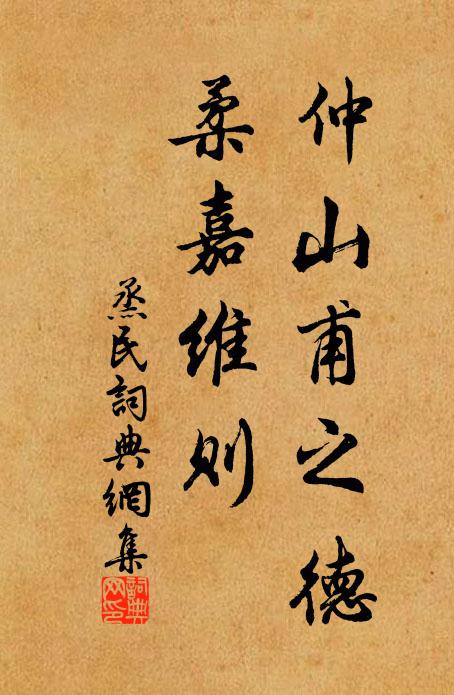 仲山甫之德
柔嘉維則
烝民詞典網集
詞典網印